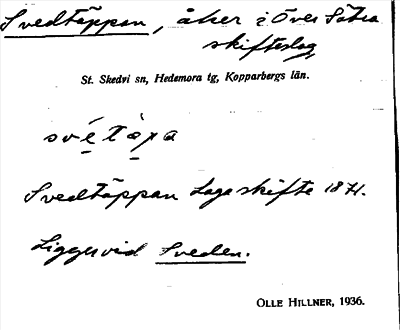 Svedtäppan, åker i Över Sätra
skifteslag
St. Skedvi sn, Hedemora tg, Kopparbergs län.
svétàpa
Svedtäppan Laga skifte 1871.
Ligger vid Sveden.
OLLE HILLNER, 1936.